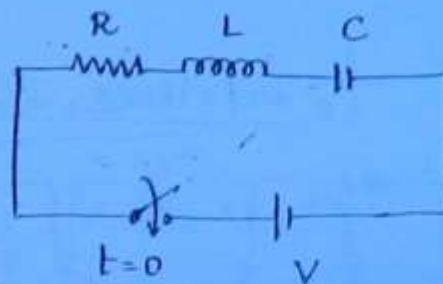 R L C
t=0 V